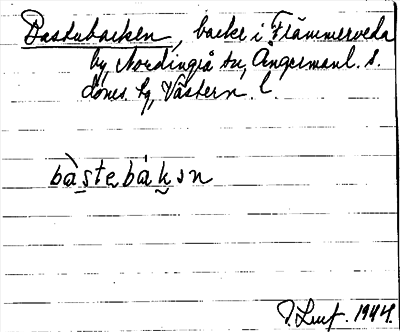 Bastubacken, backe i Främmerveda
by, Nordingrå sn, Ångermanl. s.
doms. hg, Västern. l.
bàstebàkən
1944.